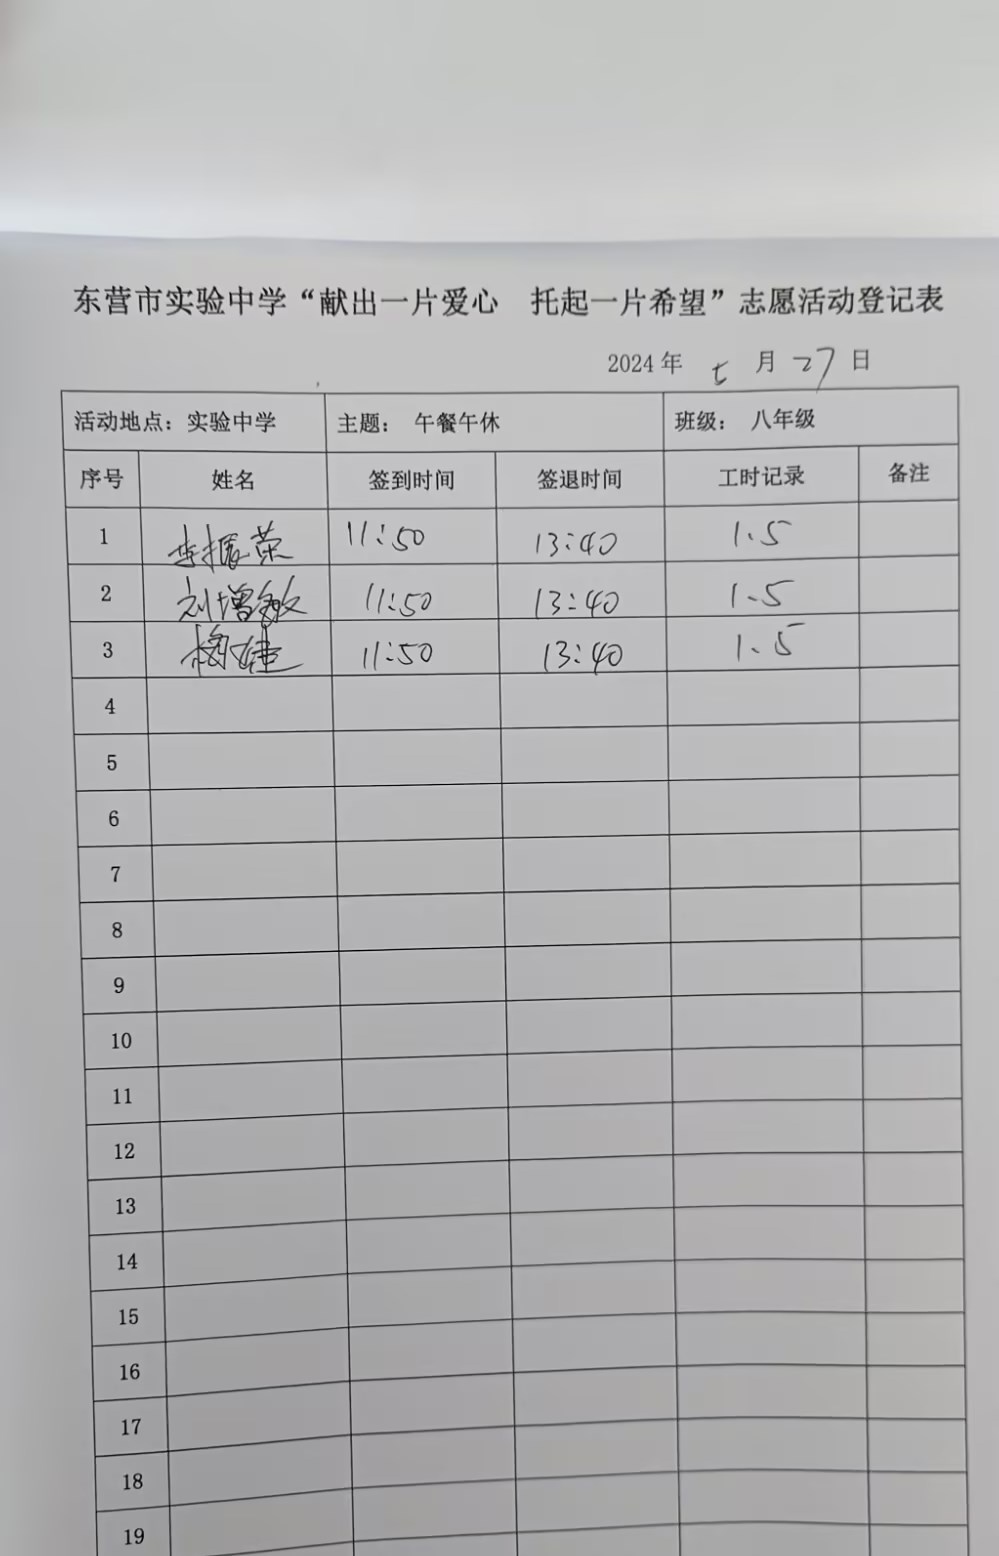 东营市实验中学“献出一片爱心 托起一片希望”志愿活动登记表
2024 年 月 27 日
活动地点：实验中学 主题： 午餐午休 班级： 八年级
序号 姓名 签到时间 签退时间 工时记录 备注
1 李振荣 11:50 13:40 1.5
2 刘增敏 11:50 13:40 1.5
3 11:50 13:40 1.5
4
5
6
7
8
9
10
11
12
13
14
15
16
17
18
19